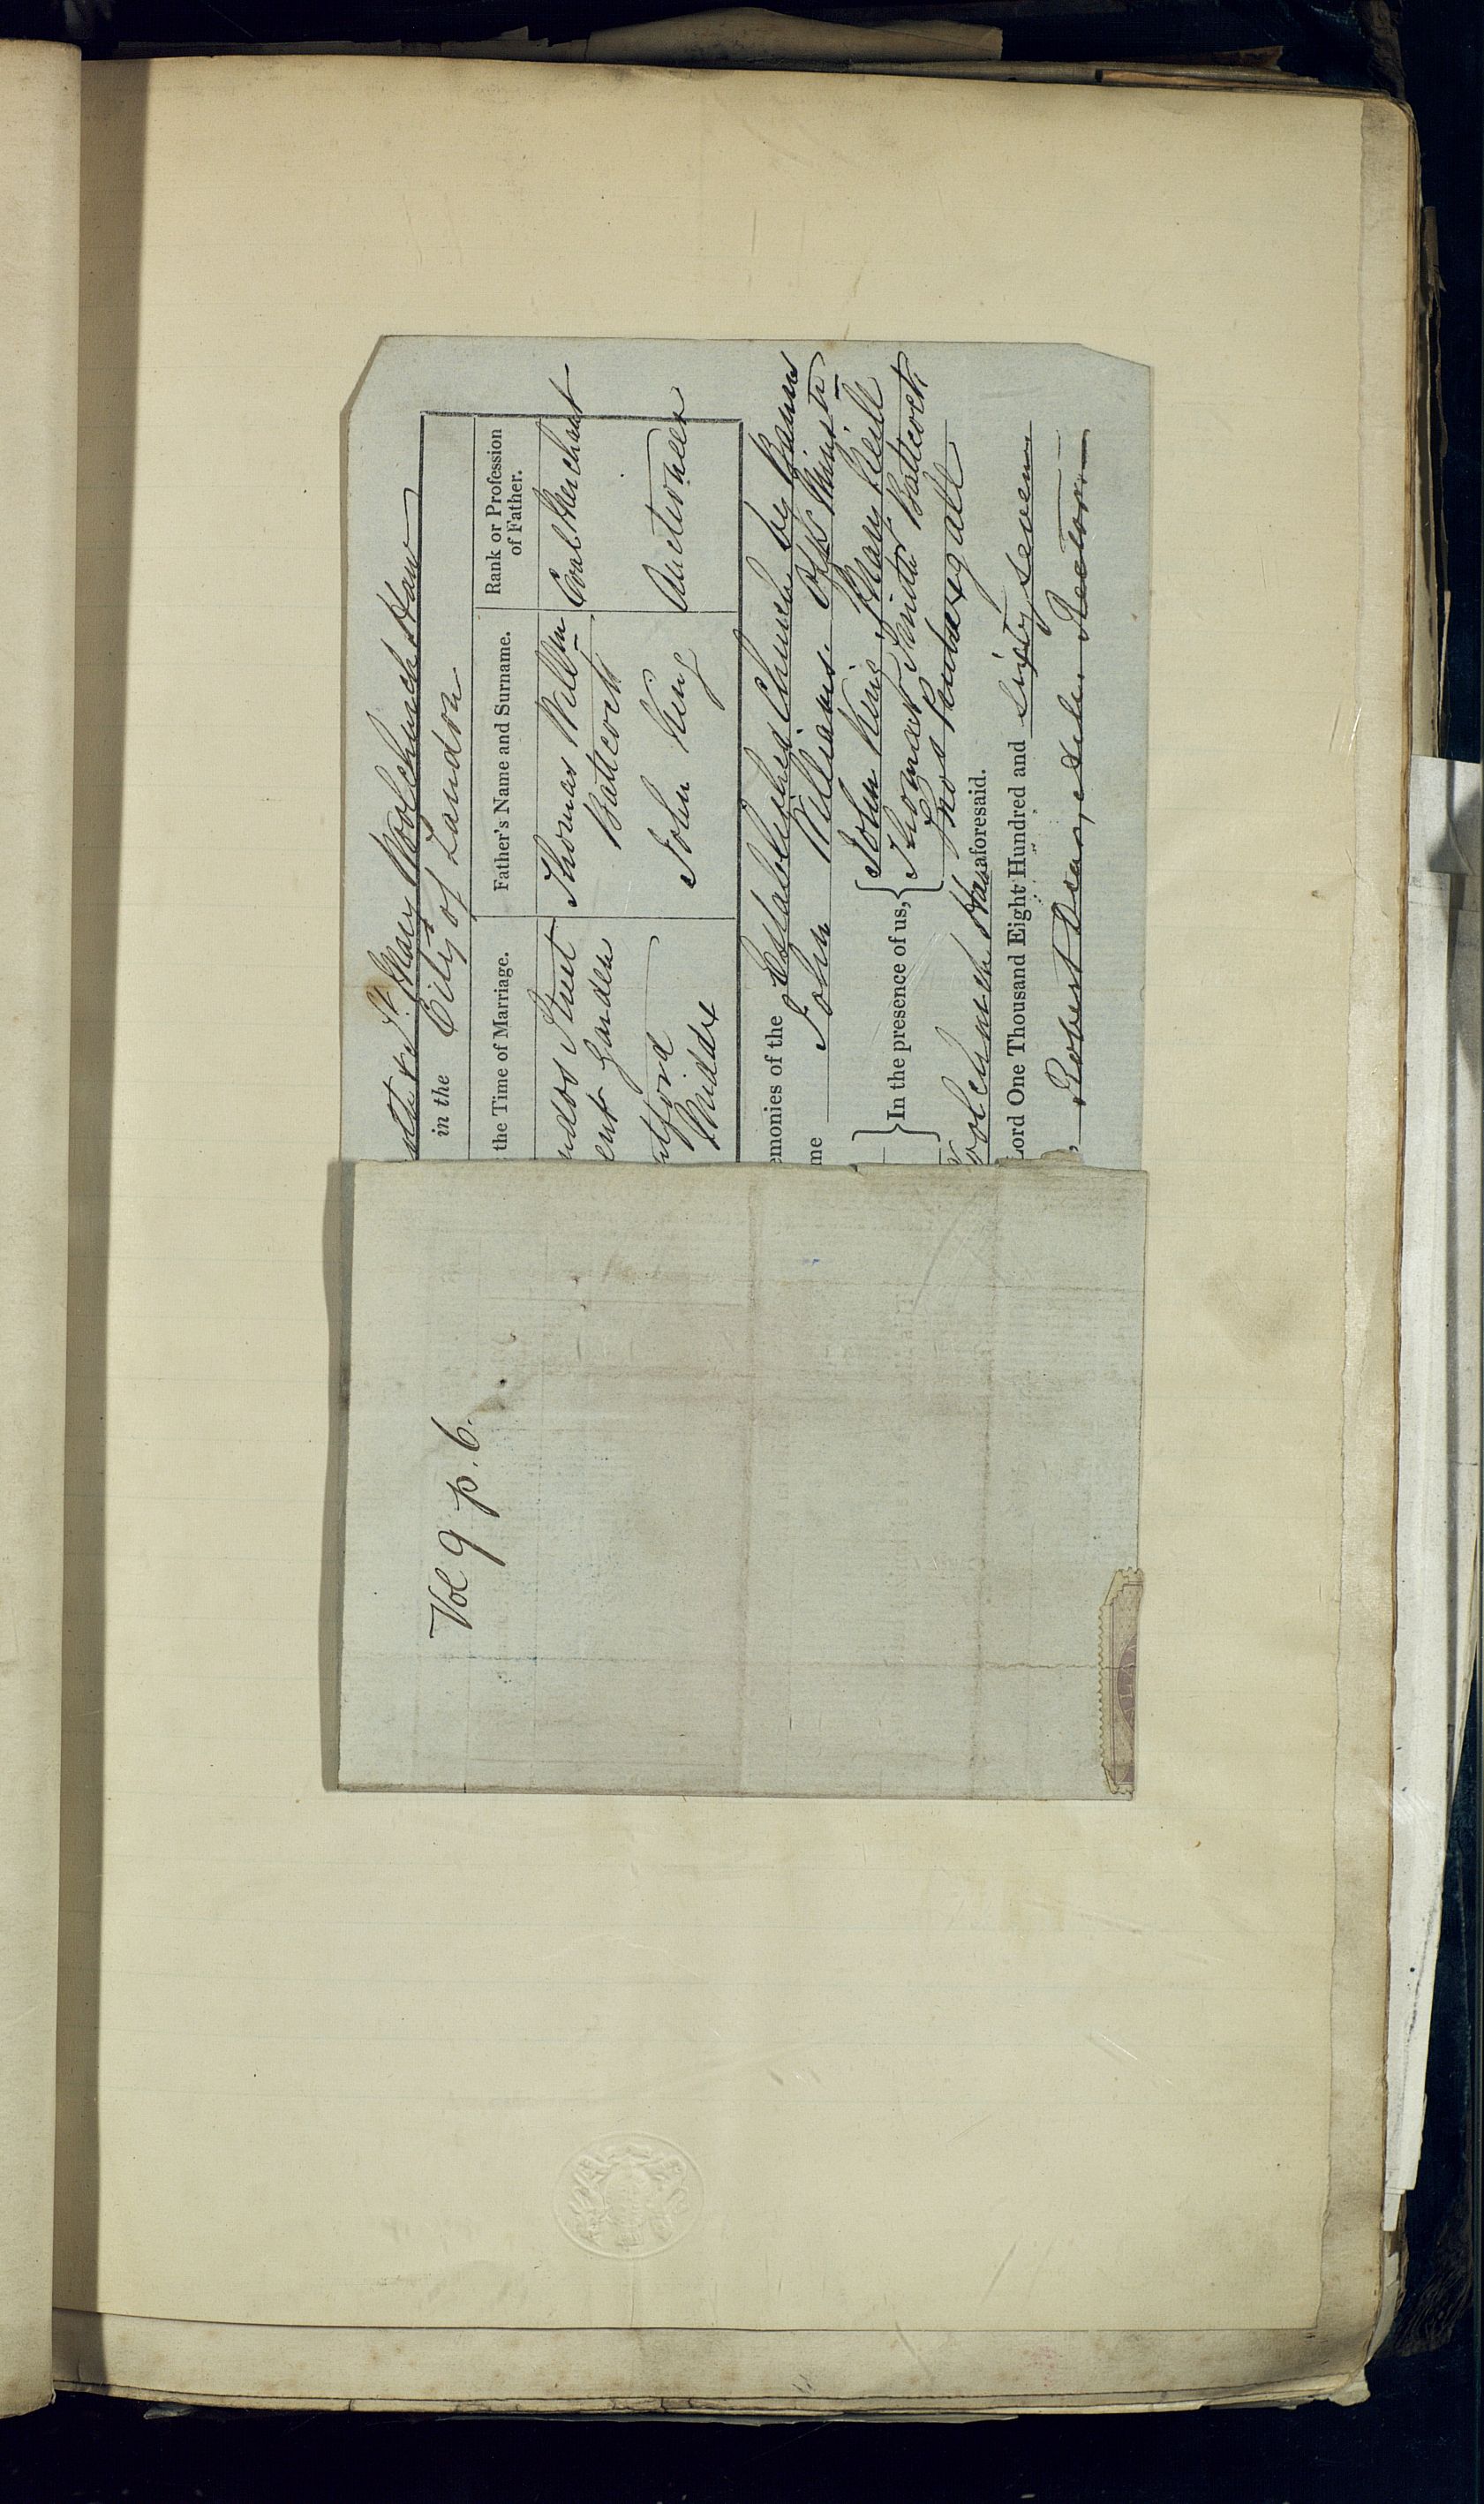 & St. Mary Woolchurch Haw
in the City of London
the Time of Marriage.
Father's Name and Surname.
Rank or Profession
of Father.
Street
Thomas Willm
Coal Merchant
ent Garden
Batlcock
tford
John King
Auctioneer
Middx
emonies of the Established Church by Banns
me John Williams Offg Ministr
In the presence of us,
John King Mary
Thomas Batlcock
Thos Pendexgall
oolchurch Haw aforesaid.
Lord One Thousand Eight Hundred and sixty seven
Robert Rector
Vol 9 p. 6.